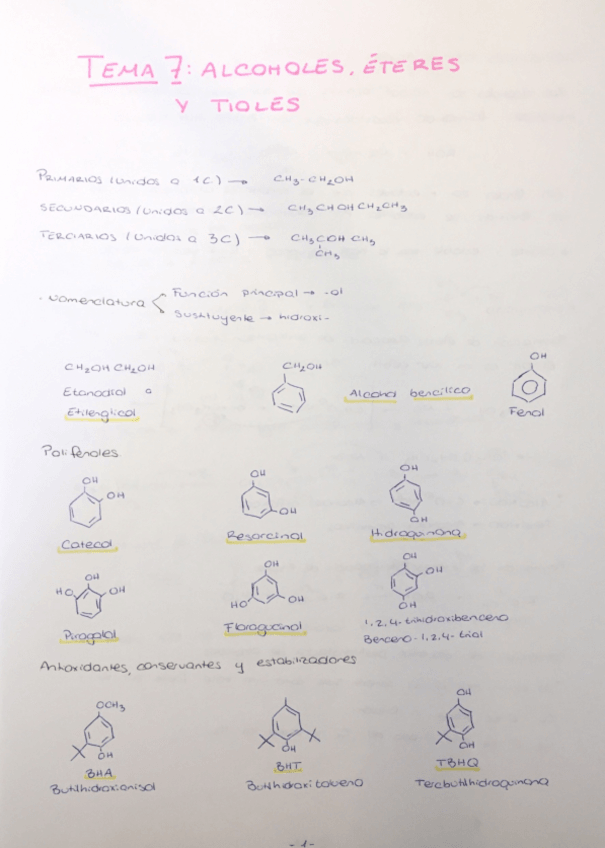 TEMA 7: ALCOHOLES, ÉTERES
Y TIOLES
PRIMARIOS (unidos a 1C) → CH3-CH2OH
SECUNDARIOS (unidos a 2C) → CH3CHOHCH2CH3
TERCIARIOS (unidos a 3C) → CH3COHCH3
CH3
· Nomenclatura
Función principal → -ol
Sustituyente → hidroxi-
CH2OH CH2OH
CH2OH
OH
Etanodiol o
Alcohol bencílico
Etilenglicol
Fenol
Polifenoles
OH OH
OH OH
OH OH
Catecol
Resorcinol
Hidroquinona
HO OH OH
OH HO OH
OH OH OH
Pirogalol
Floroglucinol
1,2,4-trihidroxibenceno
Benceno-1,2,4-triol
Antioxidantes, conservantes y estabilizadores
OCH3 OH
OH
OH OH
BHA
BHT
TBHQ
Butilhidroxianisol
Butilhidroxitolueno
Tercbutilhidroquinona
-1-